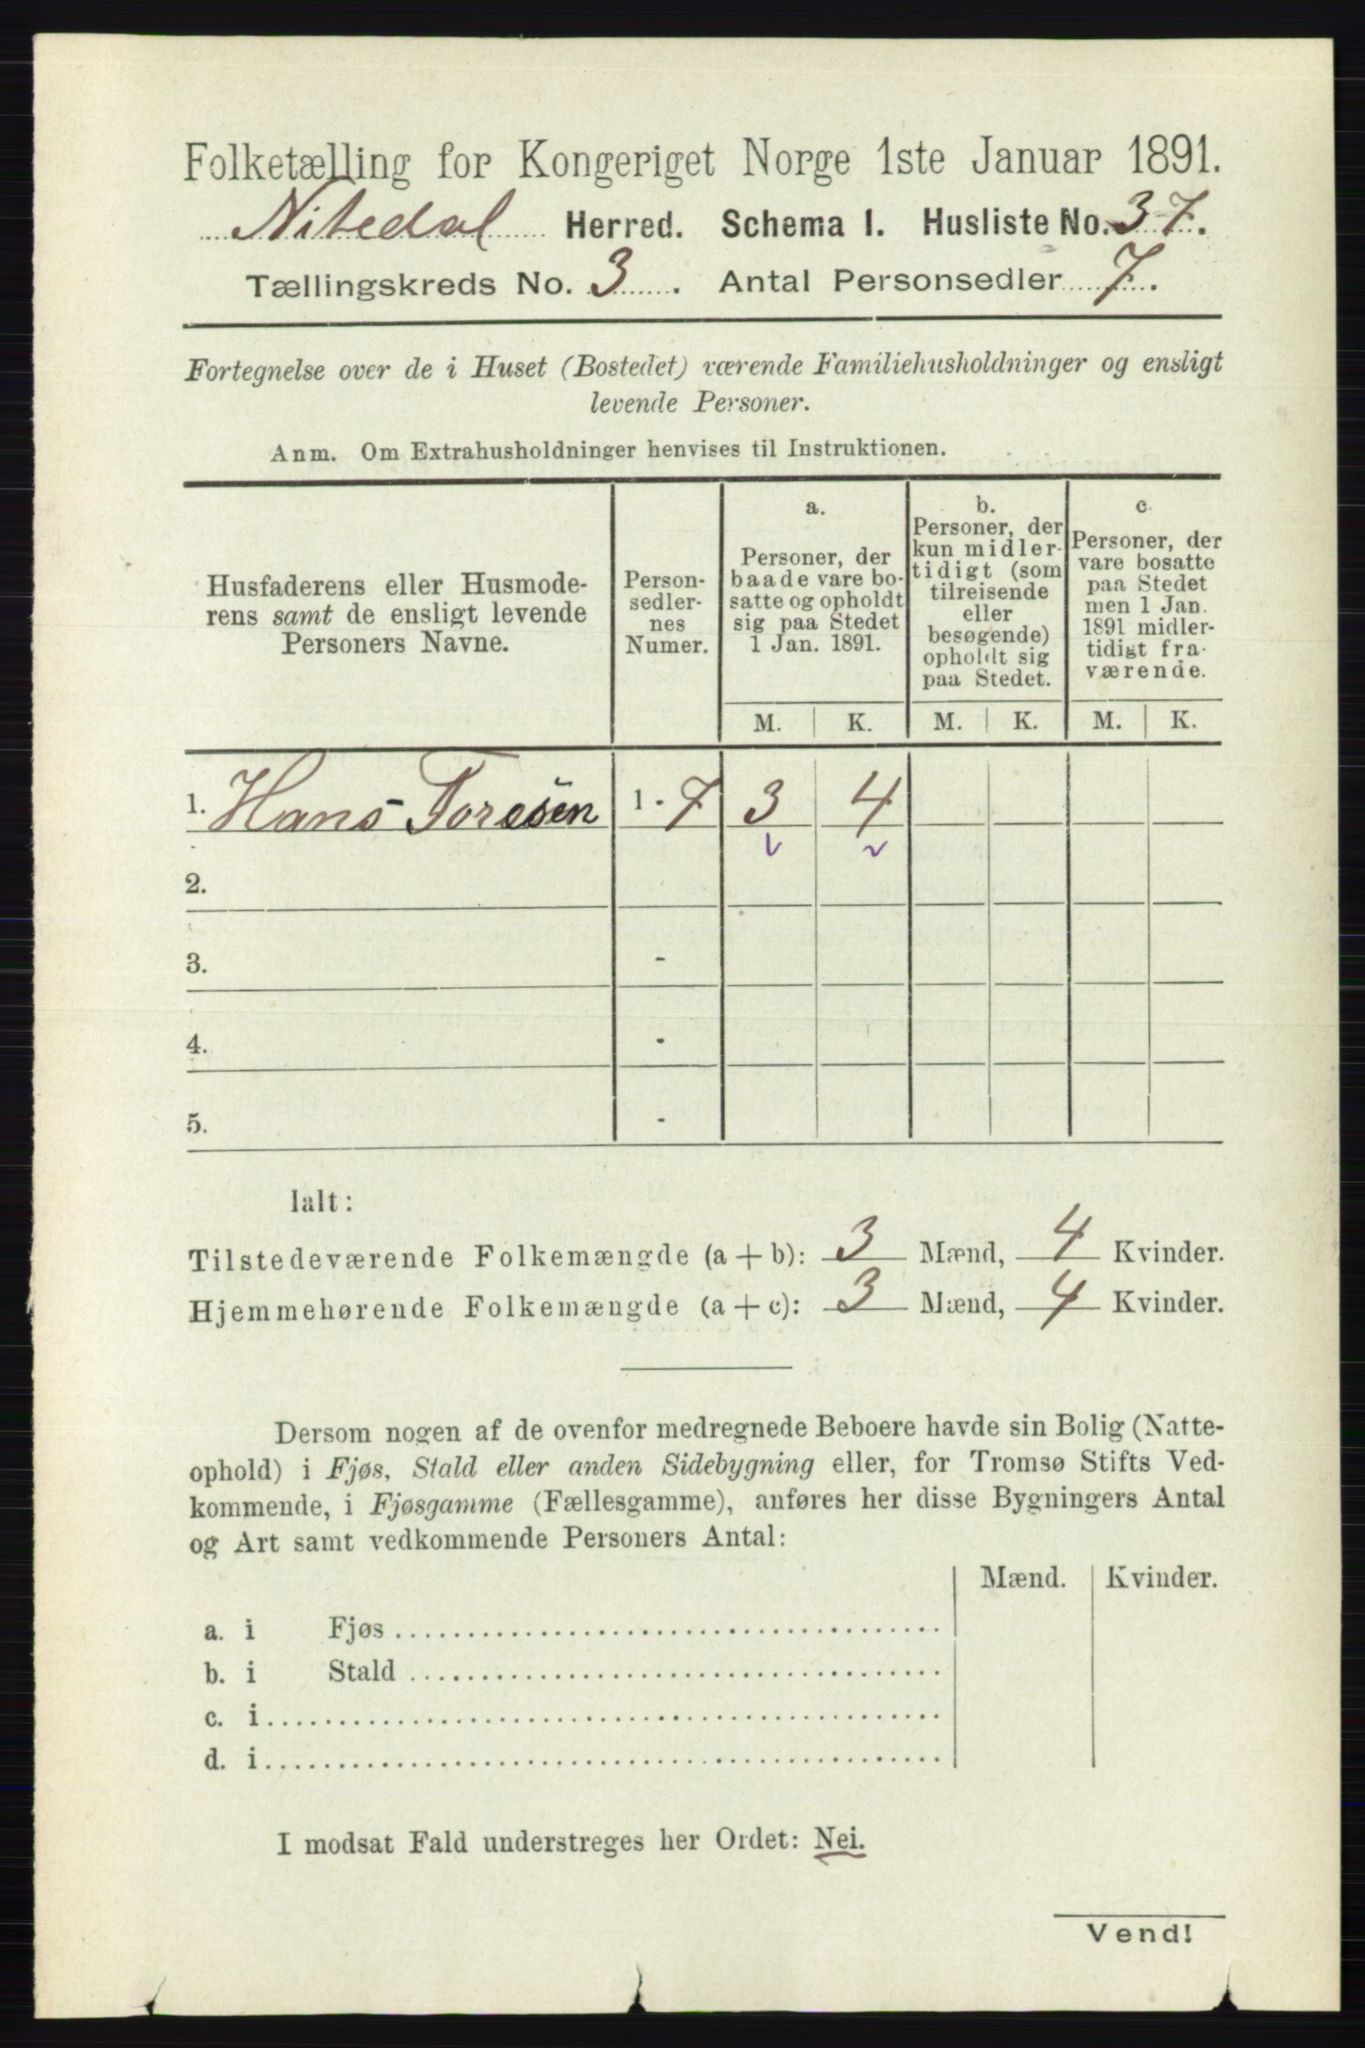 Folketælling for Kongeriget Norge 1ste Januar 1891.
Nitedal Herred. Schema I. Husliste No. 37.
Tællingskreds No. 3. Antal Personsedler 7.
Fortegnelse over de i Huset (Bostedet) værende Familiehusholdninger og ensligt
levende Personer.
Anm. Om Extrahusholdninger henvises til Instruktionen.
Husfaderens eller Husmode-
rens samt de ensligt levende
Personers Navne.
Person-
sedler-
nes
Numer.
a.
Personer, der
baade vare bo-
satte og opholdt
sig paa Stedet
1 Jan. 1891.
b.
Personer, der
kun midler-
tidigt (som
tilreisende
eller
besøgende)
opholdt sig
paa Stedet.
c.
Personer, der
vare bosatte
paa Stedet
men 1 Jan.
1891 midler-
tidigt fra-
værende.
M. K. M. K. M. K.
1. Hans Toresen 1 - 7 3 4
2.
3. -
4. -
5. -
Ialt:
Tilstedeværende Folkemængde (a + b): 3 Mænd, 4 Kvinder.
Hjemmehørende Folkemængde (a + c): 3 Mænd, 4 Kvinder.
Dersom nogen af de ovenfor medregnede Beboere havde sin Bolig (Natte-
ophold) i Fjøs, Stald eller anden Sidebygning eller, for Tromsø Stifts Ved-
kommende, i Fjøsgamme (Fællesgamme), anføres her disse Bygningers Antal
og Art samt vedkommende Personers Antal:
Mænd. Kvinder.
a. i Fjøs
b. i Stald
c. i
d. i
I modsat Fald understreges her Ordet: Nei.
Vend!